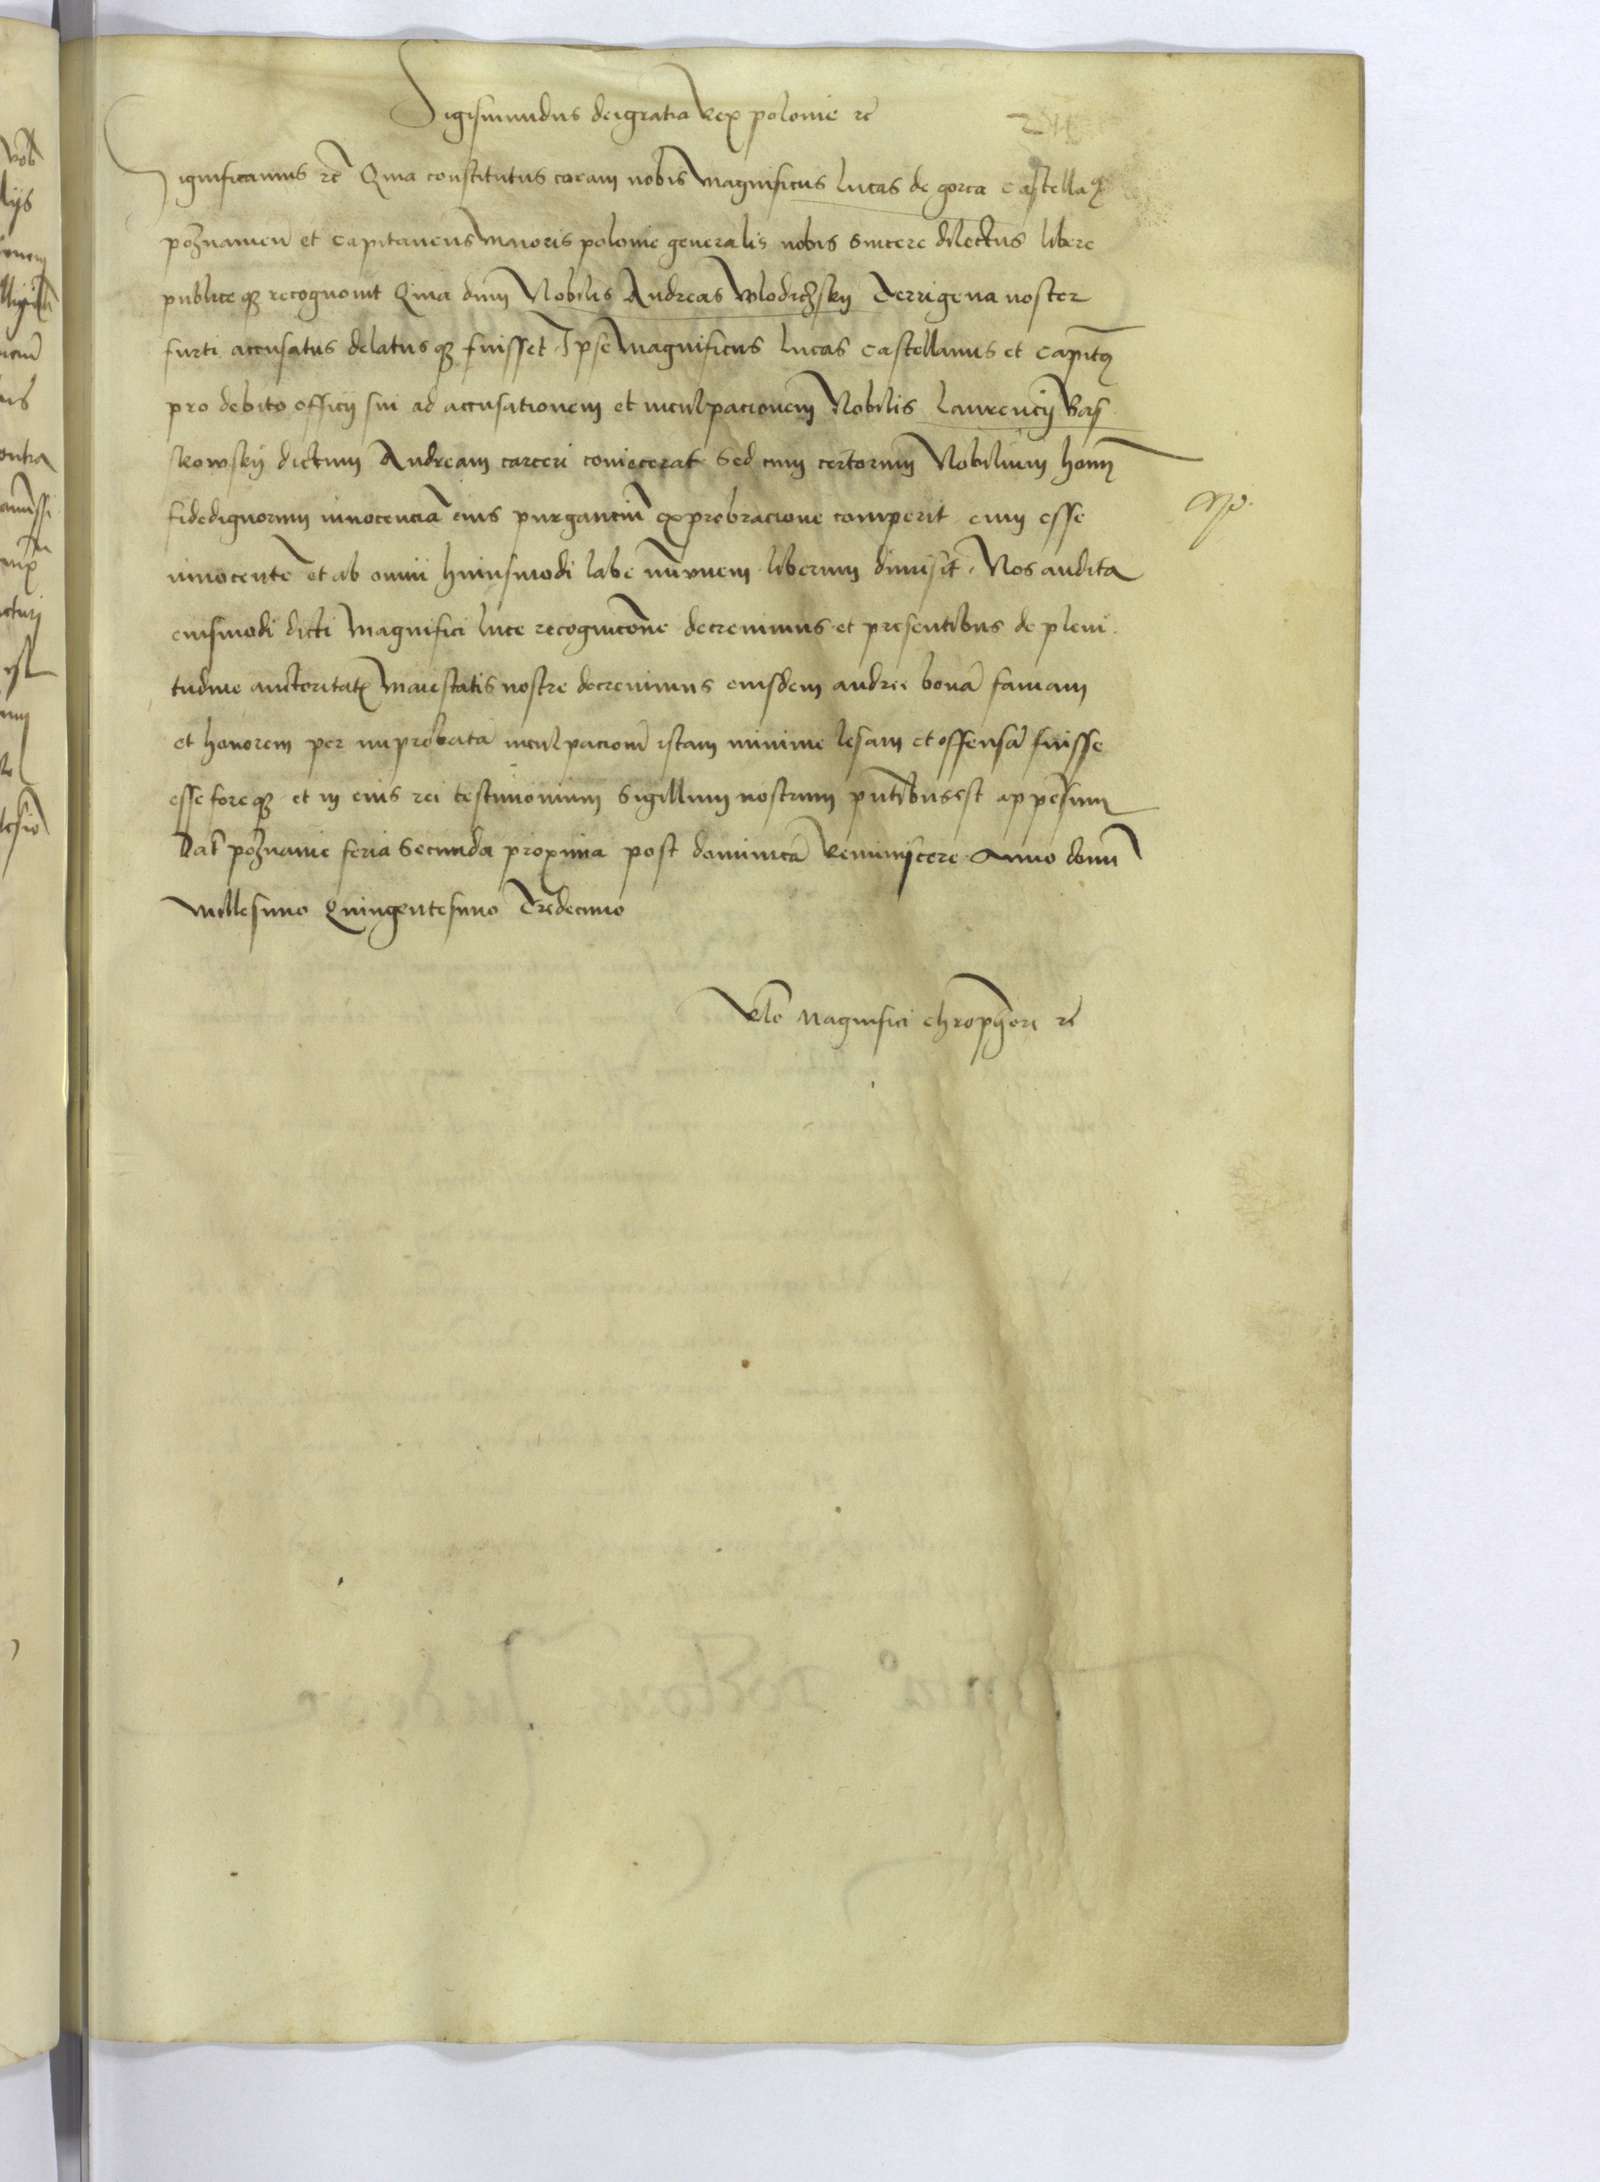 Sigismundus dei gratia Rex polonie rc̄
Significamus rc̄ Quia constitutus coram nobis Magnificus lucas de gorca Castellaꝰ
poznanien̄ et Capitaneus Maioris polonie generalis nobis sincere dilectus libere
publiceqꝫ recognouit Quia dum Nobilis Andreas Wlodzskÿ Terrigena noster
furti accusatus delatusqꝫ fuisset Ipse Magnificus lucas Castellanus et Capitꝰ
pro debito officij sui ad accusationem et inculpacionem Nobilis Laurencij Bas
skowskÿ dictum Andream carceri coniecerat Sed cum certorum Nobilium hom̄
fidedignorum innocenciā eius purganciū exprobracione comperit eum esse
innocentē et ab omni huiusmodi labe liberum dimisit. Nos audita
eiusmodi dicti Magnifici luce recognicōne decreuimus et presentibus de pleni
tudine auctoritatꝭ Maiestatis nostre decreuimus eiusdem andree bonā famam
et honorem per improbatā inculpacionē istam minime lesam et offensā fuisse
esse foreqꝫ et in eius rei testimonium Sigillum nostrum pn̄tibus est appēsum
Dat̄ poznanie feria Secunda proxima post dominicā Reminiscere Anno domī
Millesimo Quingentesimo Tredecimo
Rlo Magnifici chroþferi rc̄